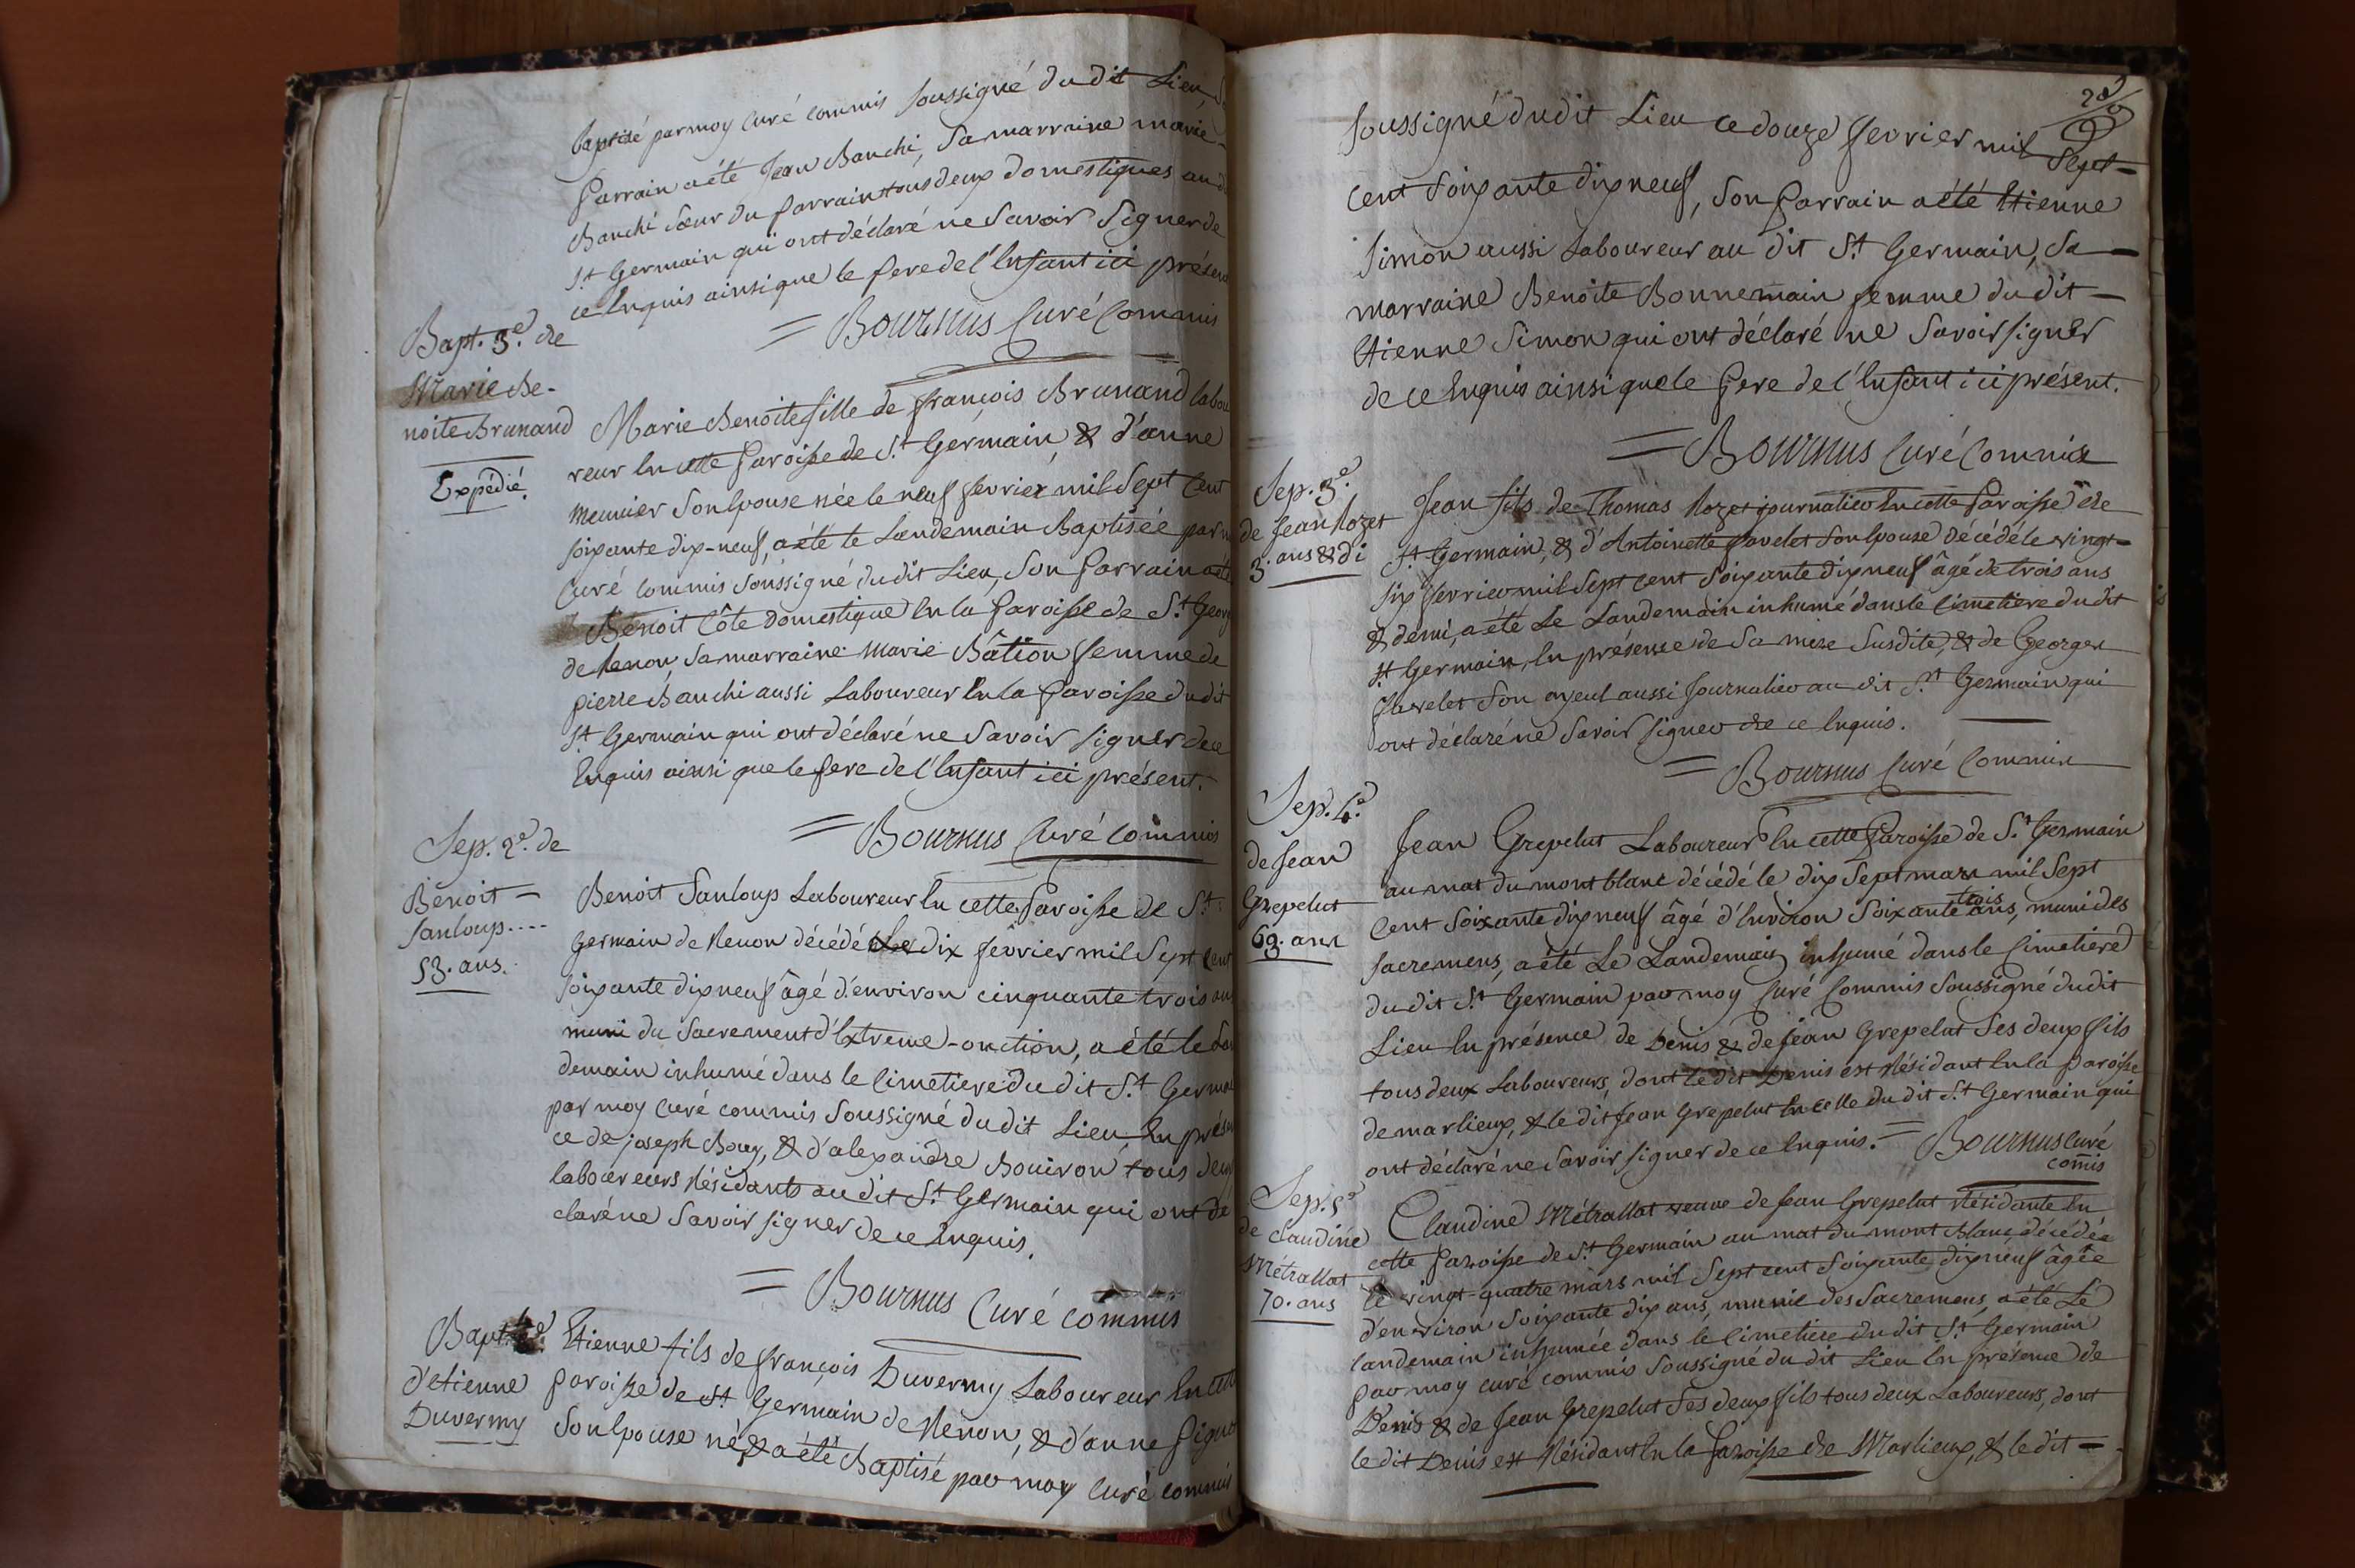 baptisé par moy Curé Commis soussigné du dit Lieu,
Parrain a été Jean Banchi, Sa marraine marie
Banchi Sœur du parrain tous deux domestiques au d
St Germain qui ont déclaré ne Savoir Signer de
ce Enquis ainsi que le Pere de l'Enfant ici présent
= Bournus Curé Commis
Bapt. 3e. de
Marie Be-
noite Brunand
Expédié.
Marie Benoite fille de françois Brunand labou
reur En cette Paroisse de St Germain, & d'anne
meunier Son Epouse née le neuf fevrier mil Sept Cent
soixante dix-neuf, a été le Landemain Baptisée par m
Curé Commis Soussigné du dit Lieu, Son Parrain a été
Benoit Côte domestique En la Paroisse de St Georg
de Renon, Sa marraine Marie Bâtion femme de
pierre Banchi aussi Laboureur En la Paroisse du dit
St Germain qui ont déclaré ne Savoir signer de ce
Enquis ainsi que le Pere de l'Enfant ici présent.
= Bournus Curé Commis
Sep. 2e. de
Benoit =
Sanloup....
53. ans.
Benoit Sanloup Laboureur En cette Paroisse de St
Germain de Renon décédé Le dix fevrier mil Sept Cent
soixante dix neuf âgé d'environ cinquante trois ans
muni du Sacrement d'Extreme-onction, a été le Lan
demain inhumé dans le Cimetiere du dit St Germai
par moy Curé commis Soussigné du dit Lieu En présen
ce de joseph Bouy, & d'alexandre Bouiron, tous deux
laboureurs Résidants au dit St Germain qui ont dé
claré ne Savoir signer de ce Enquis.
= Bournus Curé Commis
Bapt.
d'etienne
Duvermy
Etienne fils de françois Duvermy Laboureur En cette
paroisse de St Germain de Renon, & d'anne
Son Epouse né & a été Baptisé par moy Curé commis
soussigné du dit Lieu ce douze fevrier mil Sept =
cent soixante dix neuf, Son Parrain a été Etienne
Simon aussi Laboureur au dit St Germain, Sa
marraine Benoite Bonnemain femme du dit
Etienne Simon qui ont déclaré ne Savoir signer
de ce Enquis ainsi que le Pere de l'Enfant ici présent.
= Bournus Curé Commis
Sep. 3e
de Jean Rozet
3. ans & di
Jean fils de Thomas Rozet journalier En cette Paroisse de
St Germain, & d'Antoinette Favelet Son Epouse décédé le vingt-
six fevrier mil Sept Cent Soixante dix neuf âgé de trois ans
& demi, a été Le Landemain inhumé dans le Cimetiere du dit
St Germain, En présence de Sa mere Susdite, & de Georges
Favelet Son ayeul aussi Journalier au dit St Germain qui
ont déclaré ne Savoir signer de ce Enquis.
= Bournus Curé Commis
Sep. 4e
de Jean
Grepelut
63. ans
Jean Grepelut Laboureur En cette Paroisse de St Germain
au mat du mont blanc décédé le dix Sept mars mil Sept
Cent Soixante dix neuf âgé d'Environ Soixante trois ans, muni des
sacremens, a été Le Landemain inhumé dans le Cimetiere
du dit St Germain par moy Curé Commis Soussigné du dit
Lieu En présence de Denis & de Jean Grepelut Ses deux fils
tous deux Laboureurs, dont le dit Denis est Résidant En la paroisse
de marlieux, & le dit Jean Grepelut En celle du dit St Germain qui
ont déclaré ne Savoir signer de ce Enquis. = Bournus curé
com̃is
Sep. 5e
de Claudine
Métrallat
70. ans
Claudine Métrallat veuve de Jean Grepelut Résidante En
cette Paroisse de St Germain au mat du mont Blanc décédée
le vingt-quatre mars mil Sept cent Soixante dix neuf âgée
d'environ Soixante dix ans, munie des Sacremens, a été Le
landemain inhumée dans le Cimetiere du dit St Germain
par moy curé commis soussigné du dit Lieu En présence de
Denis & de Jean Grepelut Ses deux fils tous deux Laboureurs, dont
le dit Denis est Résidant En la Paroisse de Marlieux, & le dit =